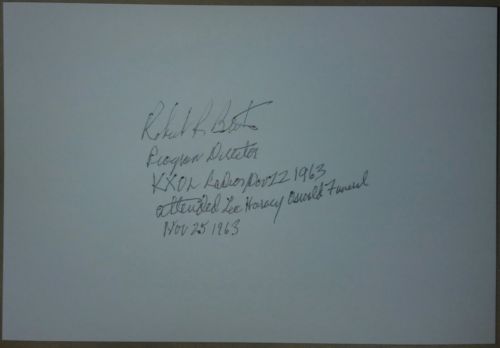 Robert R. 
Program Director
KXOL Radio Nov 22 1963
attended Lee Harvey Oswald Funeral
Nov 25 1963